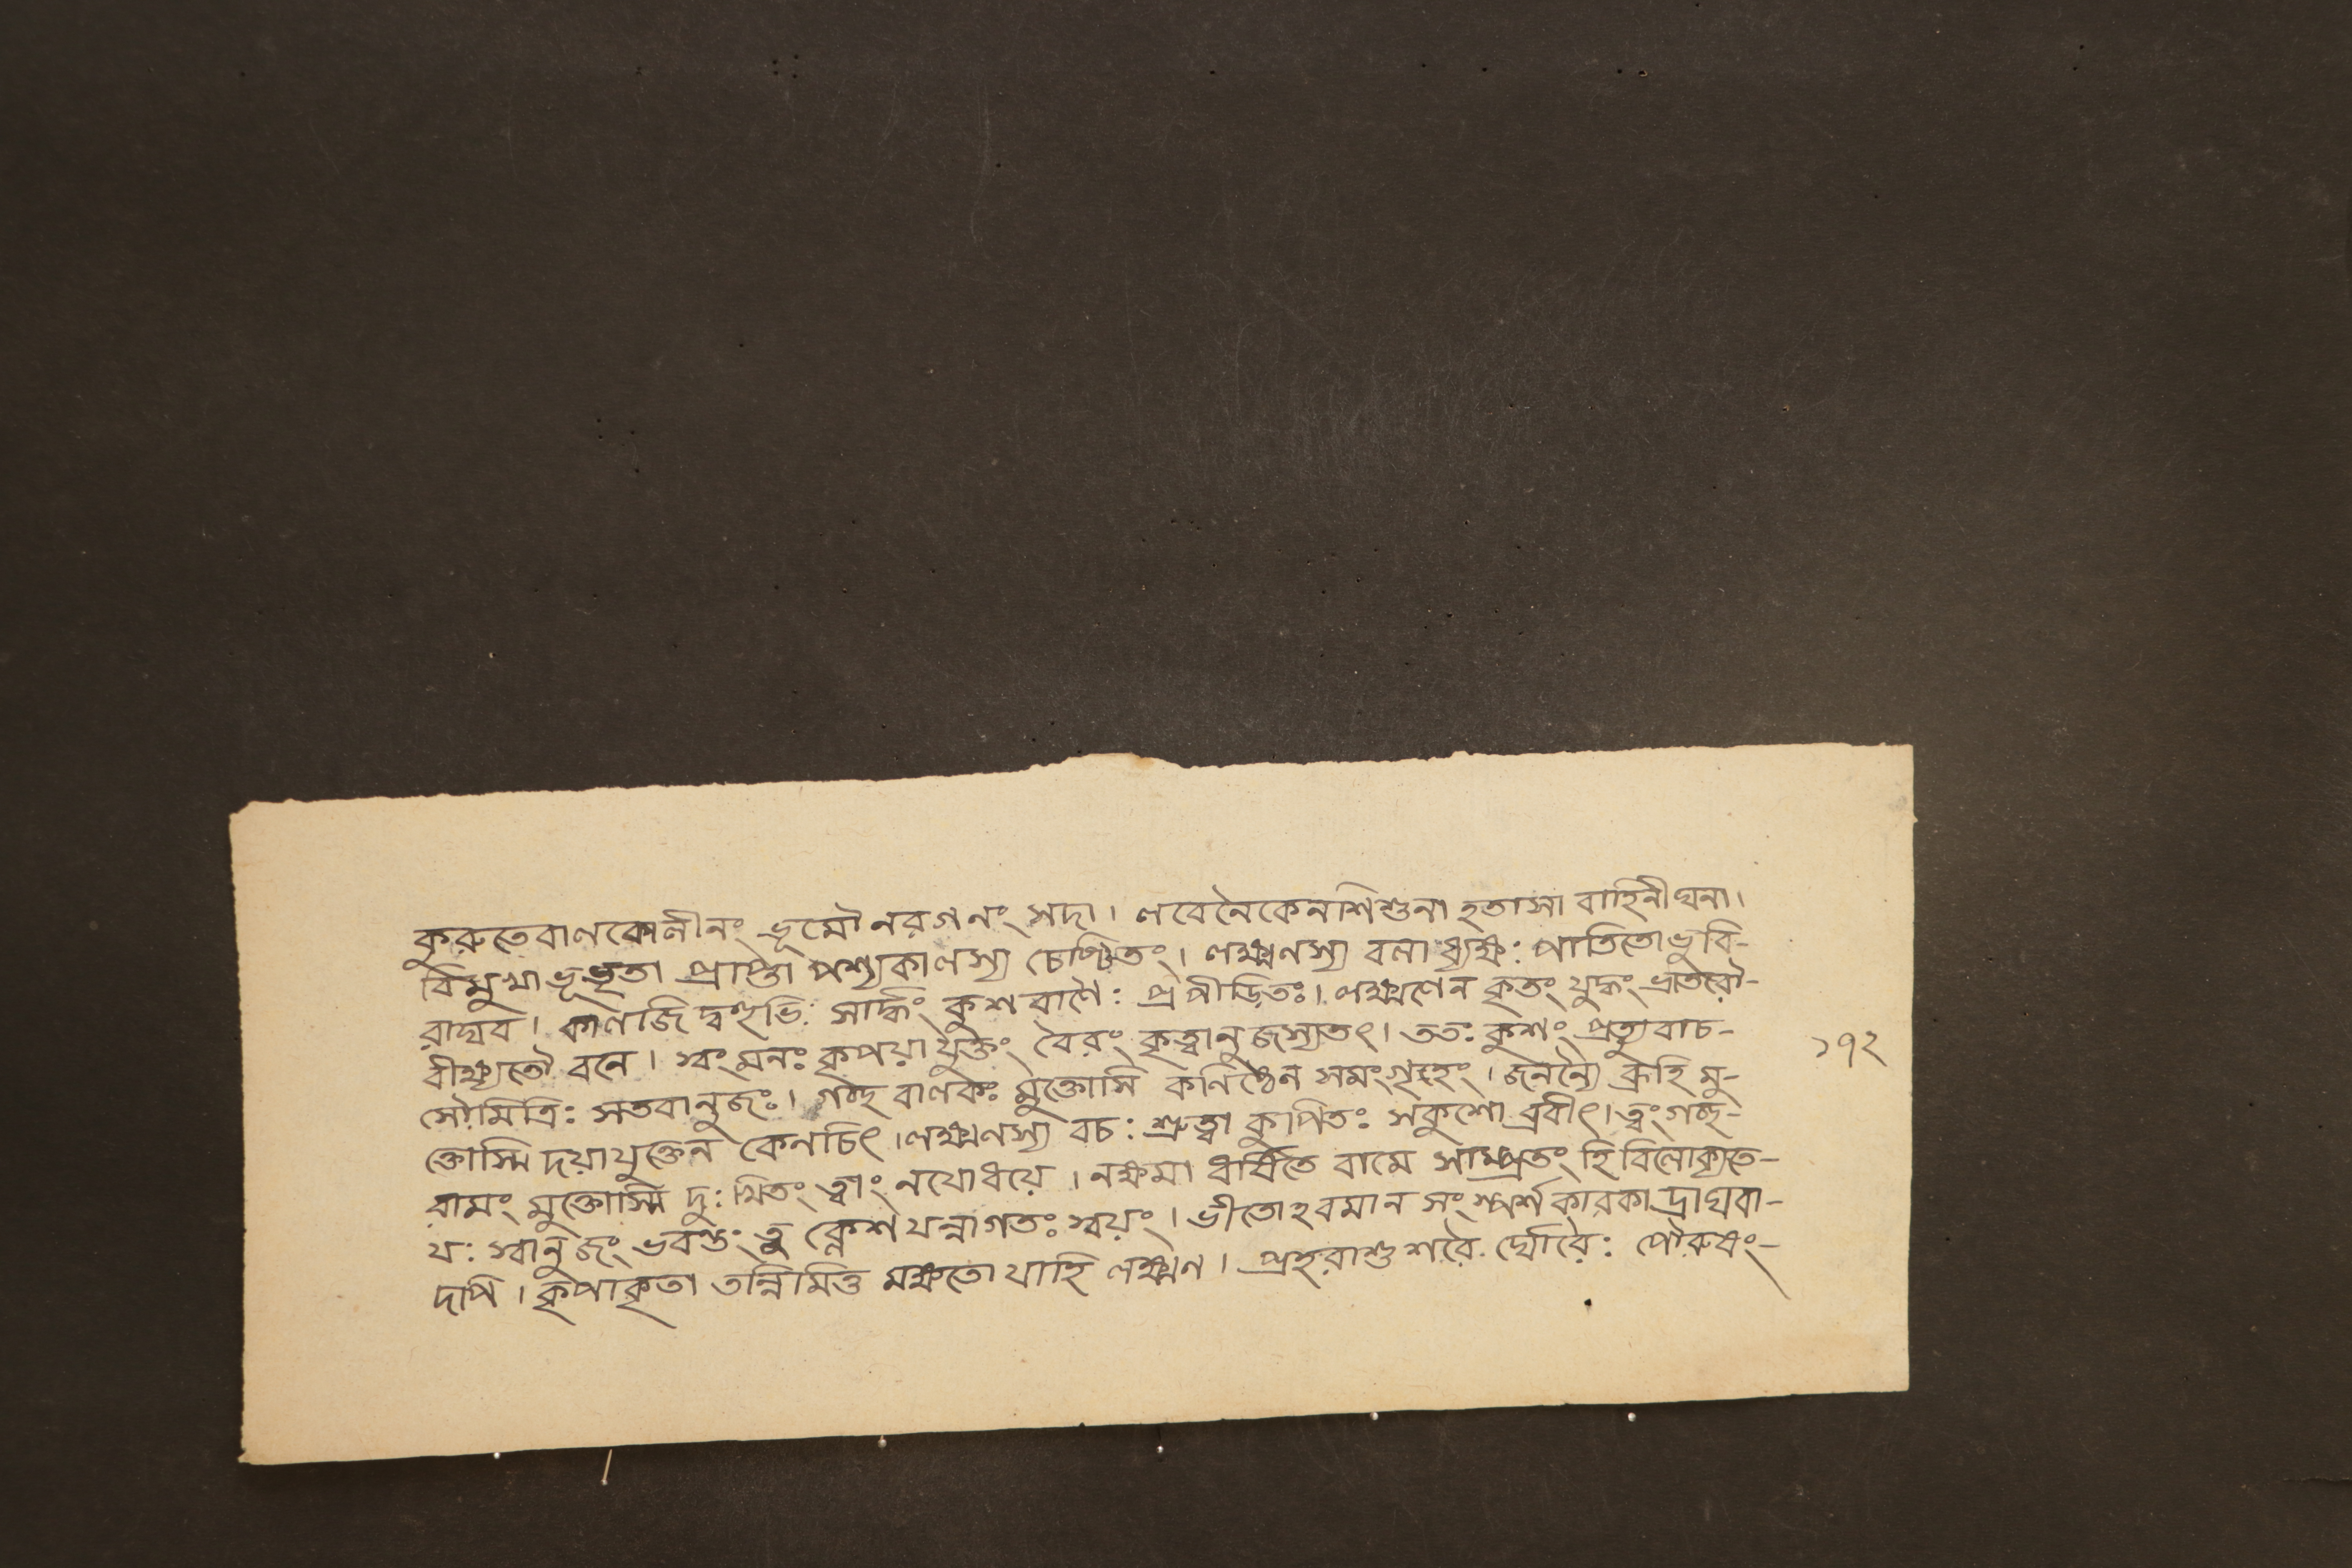 কুরুতেবাণকোলীনং ভূমৌনরগণং সদা। লবেনৈকেনশিশুনা হতাসা বাহিনীঘনা।
বিমুখাভূভৃতা প্রাপ্তা পশ্যকালস্য চেষ্টিতং। লক্ষ্মণস্য বলাধ্যক্ষ: পাতিতোভুবি-
রাঘব। কালজিদ্দশভি: সার্দ্ধং কুশবাণৈ: প্রপীড়িতঃ। লক্ষ্মণেন কৃতং যুদ্ধং ভ্রাতরৌ-
বীক্ষ্যতৌ বনে। স্বংমনঃ কৃপয়াযুক্তং বৈরং কৃত্বানুজস্যতৎ। ততঃ কুশং প্রত্যুবাচ-
সৌমিত্রি: সতবানুজঃ। গচ্ছ বালকঃ মুক্তোসি কনিষ্ঠেন সমংগৃহং। জনন্যৈ ব্রূহি মু-
ক্তোস্মি দয়াযুক্তেন কেনচিৎ। লক্ষ্মণস্য বচ: শ্রুত্বা কুপিতঃ সকুশোব্রবীৎ। ত্বংগচ্ছ-
রামং মুক্তোস্মি দু:খিতং ত্বাং নযোধয়ে। নক্ষমা ধর্ষিতে বামে সাম্প্রতং হি বিলোক্যতে-
য: স্বানুজং ভবন্তং তু ক্লেশযন্নাগতঃ স্বয়ং। ভীতোহবমান সংস্পর্শকারকাদ্রাঘবা-
দপি। কৃপাকৃতা তন্নিমিত্ত মক্ষতো যাহি লক্ষ্মণ। প্রহরাশুশরৈর্ঘোরৈ: পৌরুষং-
১৭২